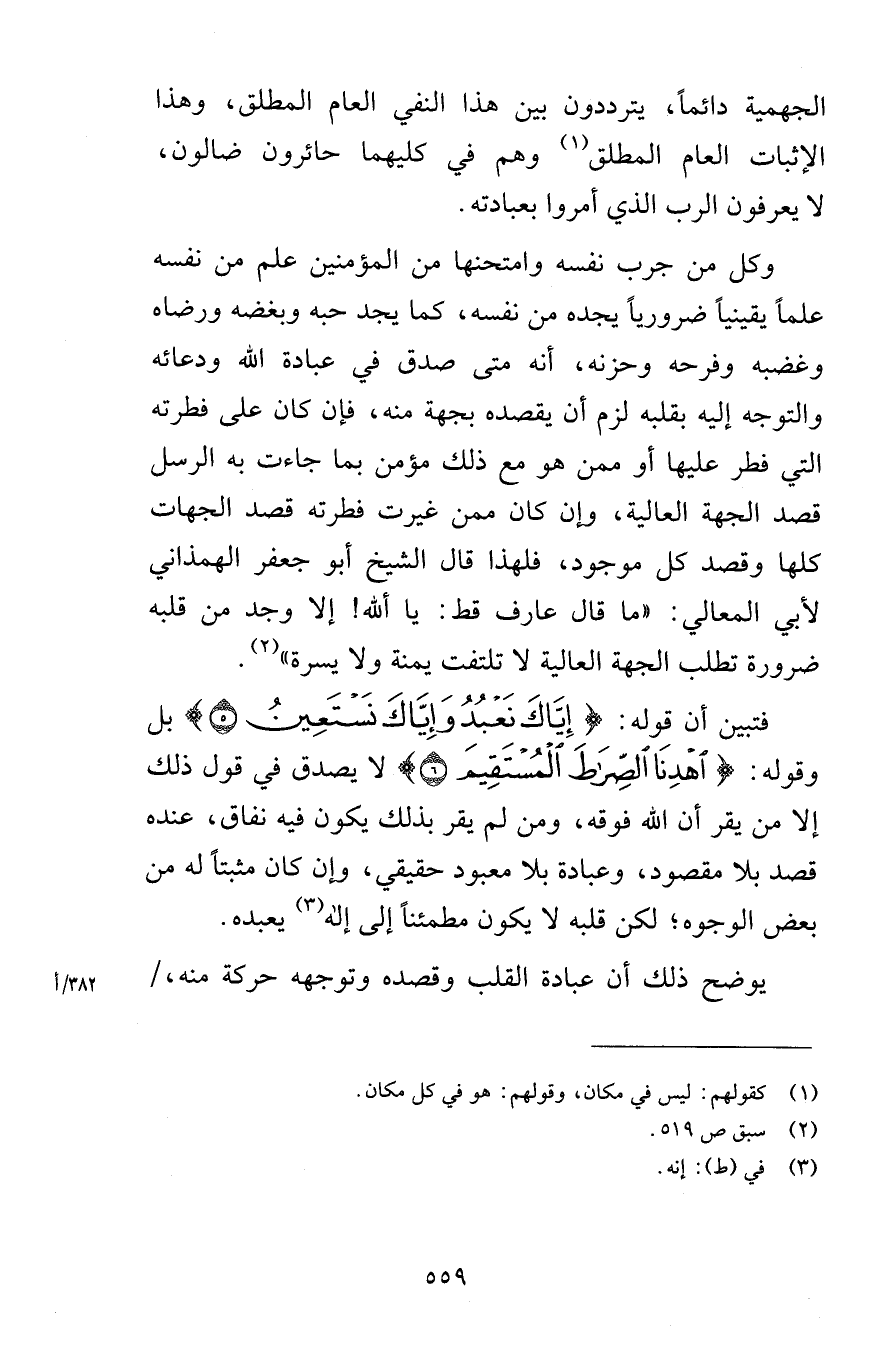 الجهمية دائماً، يترددون بين هذا النفي العام المطلق، وهذا
الإثبات العام المطلق(١) وهم في كليهما حائرون ضالون،
لا يعرفون الرب الذي أمروا بعبادته.
وكل من جرب نفسه وامتحنها من المؤمنين علم من نفسه
علماً يقينياً ضرورياً يجده من نفسه، كما يجد حبه وبغضه ورضاه
وغضبه وفرحه وحزنه، أنه متى صدق في عبادة الله ودعائه
والتوجه إليه بقلبه لزم أن يقصده بجهة منه، فإن كان على فطرته
التي فطر عليها أو ممن هو مع ذلك مؤمن بما جاءت به الرسل
قصد الجهة العالية، وإن كان ممن غيرت فطرته قصد الجهات
كلها وقصد كل موجود، فلهذا قال الشيخ أبو جعفر الهمذاني
لأبي المعالي: «ما قال عارف قط: يا ألله! إلا وجد من قلبه
ضرورة تطلب الجهة العالية لا تلتفت يمنة ولا يسرة»(٢).
فتبين أن قوله: ﴿إِيَّاكَ نَعْبُدُ وَإِيَّاكَ نَسْتَعِينُ ۝٥﴾ بل
وقوله: ﴿ٱهْدِنَا ٱلصِّرَٰطَ ٱلْمُسْتَقِيمَ ۝٦﴾ لا يصدق في قول ذلك
إلا من يقر أن الله فوقه، ومن لم يقر بذلك يكون فيه نفاق، عنده
قصد بلا مقصود، وعبادة بلا معبود حقيقي، وإن كان مثبتاً له من
بعض الوجوه؛ لكن قلبه لا يكون مطمئناً إلى إلٰه(٣) يعبده.
يوضح ذلك أن عبادة القلب وقصده وتوجهه حركة منه،/ ٣٨٢/أ
(١) كقولهم: ليس في مكان، وقولهم: هو في كل مكان.
(٢) سبق ص ٥١٩.
(٣) في (ط): إنه.
٥٥٩